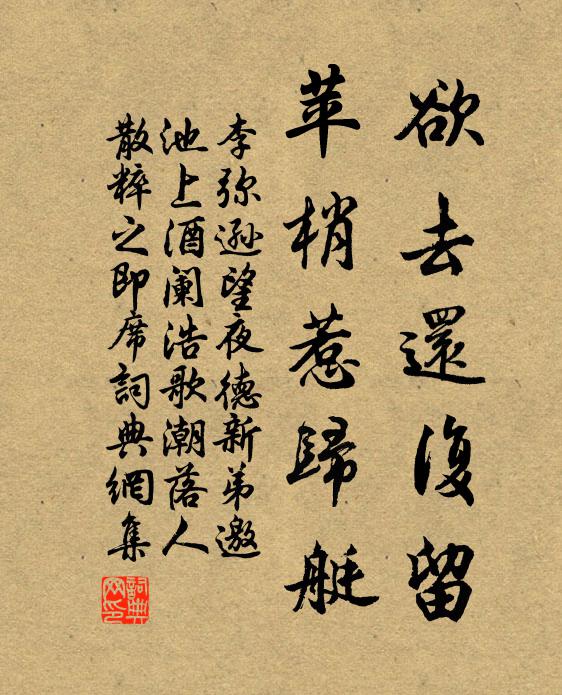 欲去還復留
苹梢惹歸艇
李弥遜望夜德新弟邀
池上酒阑浩歌潮落人
散粹之即席詞典網集
詞典网印